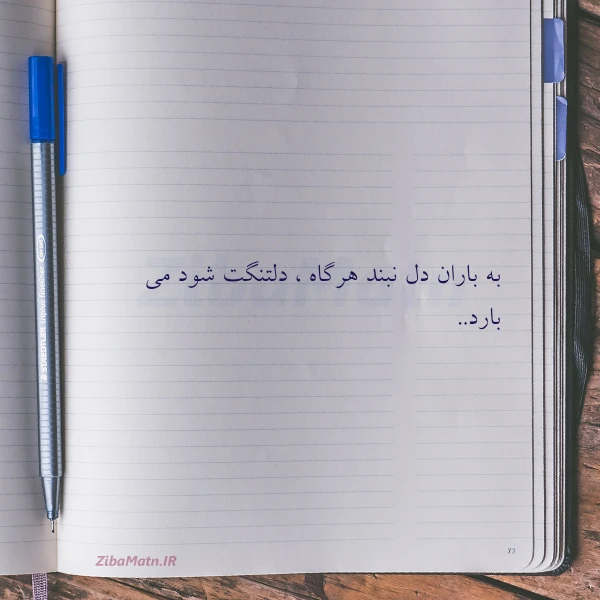 به باران دل نبند هرگاه ، دلتنگت شود می
بارد..
ZibaMatn.IR
77